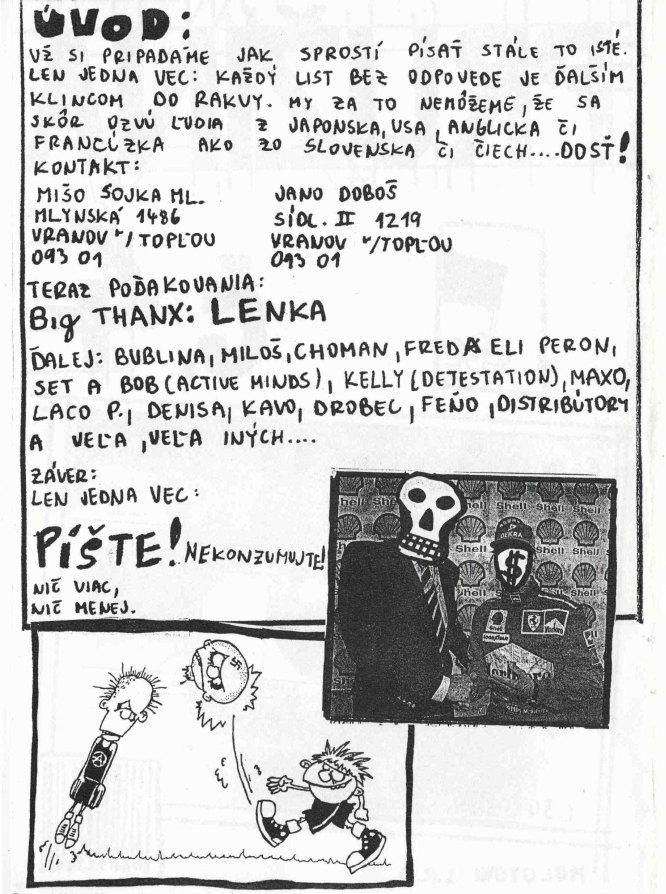 ÚVOD:
UŽ SI PRIPADÁME JAK SPROSTÍ PÍSAŤ STÁLE TO ISTÉ.
LEN JEDNA VEC: KAŽDÝ LIST BEZ ODPOVEDE JE ĎALŠÍM
KLINCOM DO RAKVY. MY ZA TO NEMÔŽEME, ŽE SA
SKÔR OZVÚ ĽUDIA Z JAPONSKA, USA, ANGLICKA ČI
FRANCÚZKA AKO ZO SLOVENSKA ČI ČIECH....DOSŤ!
KONTAKT:
MIŠO SOJKA ML.
MLYNSKÁ 1486
VRANOV N/TOPĽOU
093 01
JANO DOBOŠ
SÍDL. II 1219
VRANOV N/TOPĽOU
093 01
TERAZ POĎAKOVANIA:
BIg THANX: LENKA
ĎALEJ: BUBLINA, MILOŠ, CHOMAN, FRED A ELI PERON,
SET A BOB (ACTIVE MINDS), KELLY (DETESTATION), MAXO,
LACO P., DENISA, KAVO, DROBEC, FEŇO, DISTRIBÚTORY
A VEĽA, VEĽA INÝCH....
ZÁVER:
LEN JEDNA VEC:
PÍŠTE! NEKONZUMUJTE!
NIČ VIAC,
NIČ MENEJ.
Shell
Shell
Shell
Shell
DEKRA
Shell
Shell
$
Shell
GOODYEAR
Marlboro